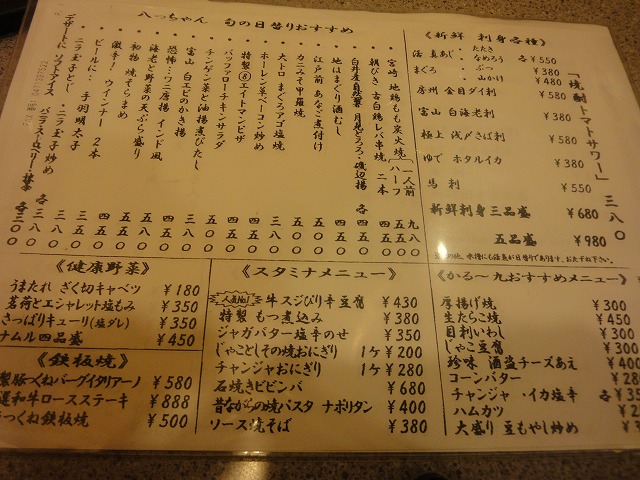 八っちゃん 旬の日替りおすすめ
宮崎 地鶏もも炭火焼 一人前 九八〇
ハーフ 五五〇
朝びき・古白鶏レバ串焼 二本
白井産自然薯 月見とろろ・磯辺揚 各
地はまぐり酒むし
江戸前 あなご煮付け
カニみそ甲羅焼
大トロ まぐろアゴ塩焼
特製⑧エイトマンピザ
ホーレン草ベーコン炒め
バッファローチキンサラダ
チンゲン菜と油揚煮びたし
富山 白エビのかき揚
恐怖…ワニ唐揚 インド風
海老と野菜の天ぷら盛り
和物 焼そらまめ
激辛!ウインナー 2本
ビールに…手羽明太子
ニラ玉子とじ・ニラ玉子炒め
デザートに ソフトアイス バニラ・ストロベリー・抹茶 各三〇〇
《新鮮 刺身各種》
活 真あじ・たたき
・なめろう 各¥550
まぐろ ・ぶつ ¥380
・山かけ ¥480
房州 金目ダイ刺 ¥580
富山 白海老刺 ¥380
極上 浅〆さば刺 ¥580
ゆで ホタルイカ ¥380
馬刺 ¥550
新鮮刺身三品盛 ¥680
五品盛 ¥980
「焼酎トマトサワー」三八〇
の他、水槽にも活魚が日替りであります。おたずね下さい。
《健康野菜》
うまたれ ざく切キャベツ ¥180
茗荷とエシャレット塩もみ ¥350
さっぱりキューリ(塩ダレ) ¥350
ナムル四品盛 ¥450
《鉄板焼》
製豚つくねバーグイタリアーノ ¥580
和牛ロースステキ ¥888
つくね鉄板焼 ¥500
《スタミナメニュー》
人気No.1 牛スジぴり辛豆腐 ¥430
特製 もつ煮込み ¥380
ジャガバター塩辛のせ ¥350
じゃことしその焼おにぎり 1ケ¥200
チャンジャおにぎり 1ケ¥280
石焼きビビンバ ¥680
昔ながらの焼パスタ ナポリタン ¥400
ソース焼そば ¥380
《かる〜九おすすめメニュー》
厚揚げ焼 ¥300
生たらこ焼 ¥450
目刺いわし ¥300
じゃこ豆腐 ¥300
珍味 酒盗チーズあえ ¥400
コーンバター ¥280
チャンジャ・イカ塩辛 各¥35
ハムカツ
大盛り 豆もやし炒め ¥3